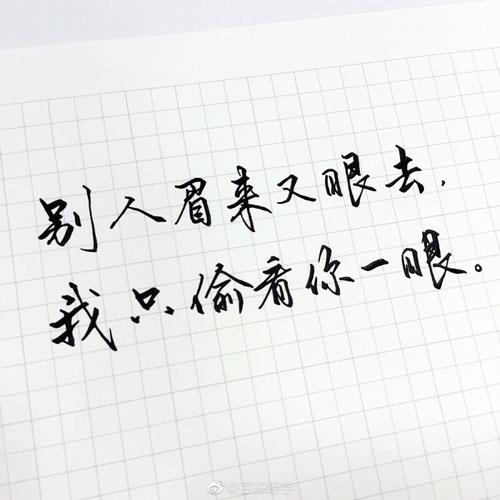 别人眉来又眼去，
我只偷看你一眼。